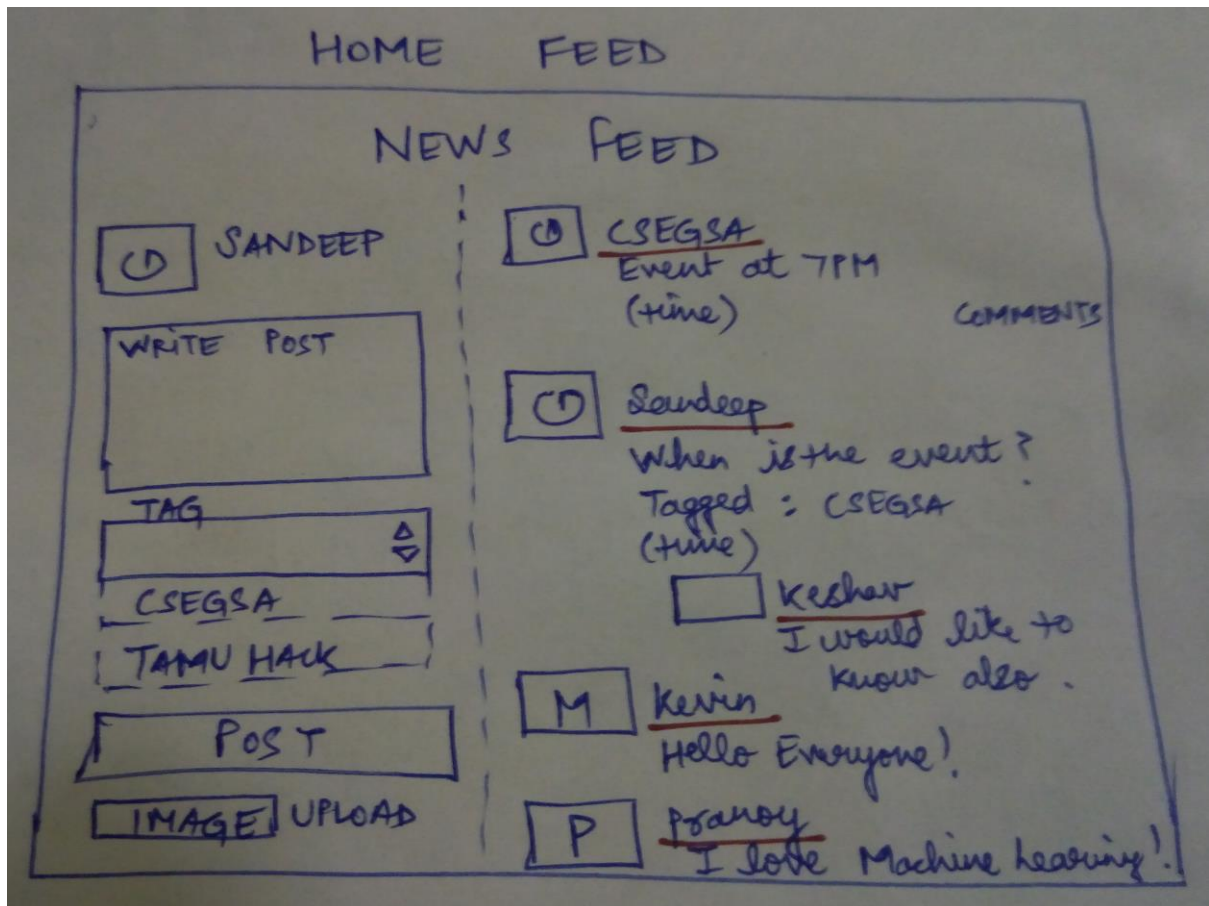 HOME FEED
NEWS FEED
SANDEEP
WRITE POST
TAG
CSEGSA
TAMU HACK
POST
IMAGE UPLOAD
CSEGSA
Event at 7PM
(time)
COMMENTS
Sandeep
When is the event?
Tagged : CSEGSA
(time)
Keshav
I would like to
know also.
M Kevin
Hello Everyone!
P Pranoy
I love Machine Learning!